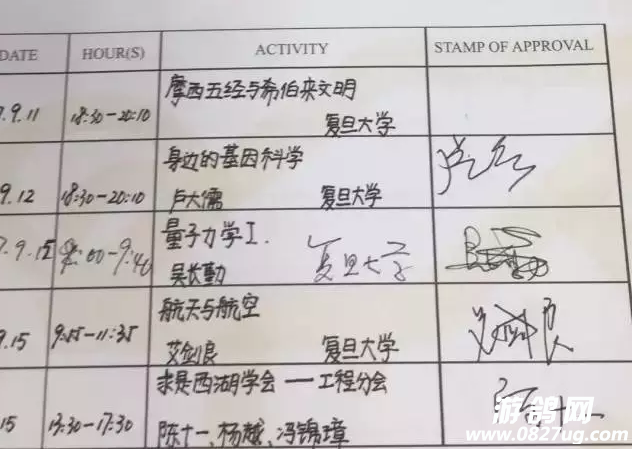 DATE HOUR(S) ACTIVITY STAMP OF APPROVAL
.9.11 18:30-20:10 摩西五经与希伯来文明
复旦大学
9.12 18:30-20:10 身边的基因科学
卢大儒 复旦大学
7.9.15 量子力学I.
吴长勤 复旦大学
9.15 9:55-11:35 航天与航空
艾剑良 复旦大学
15 13:30-17:30 求是西湖学会——工程分会
陈十一、杨越、冯锦璋
游鸽网
www.0827ug.com